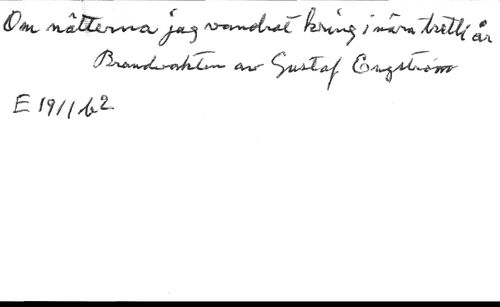 Om nätterna jag vandrat kring i nära tretti år
Brandvakten av Gustaf Engström
E 1911 b2